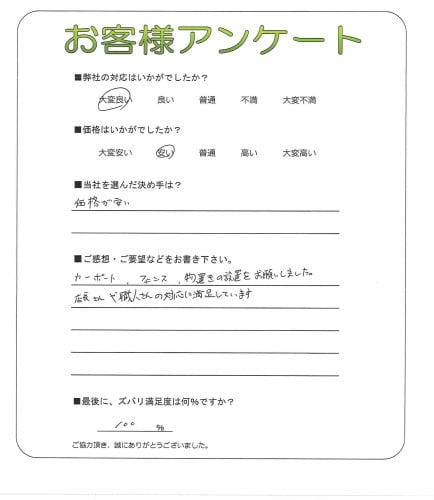 お客様アンケート
■弊社の対応はいかがでしたか？
大変良い 良い 普通 不満 大変不満
■価格はいかがでしたか？
大変安い 安い 普通 高い 大変高い
■当社を選んだ決め手は？
価格が安い
■ご感想・ご要望などをお書き下さい。
カーポート、フェンス、物置きの設置をお願いしました。
店長さんや職人さんの対応に満足しています
■最後に、ズバリ満足度は何％ですか？
100 ％
ご協力頂き、誠にありがとうございました。